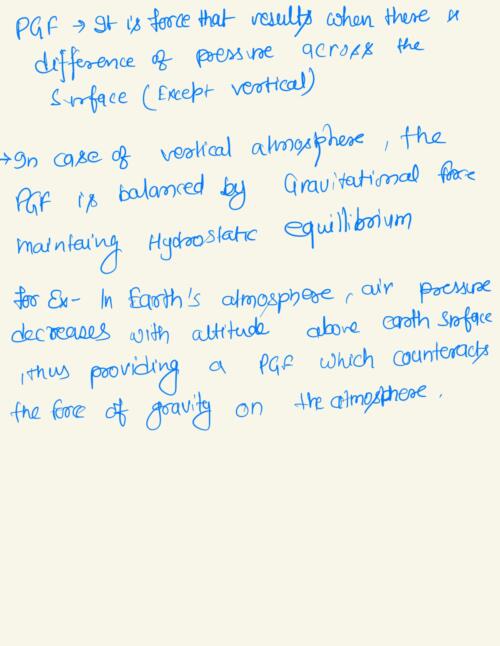 PGF → It is force that results when there is
difference of pressure across the
surface (Except vertical)
→ In case of vertical atmosphere, the
PGF is balanced by Gravitational force
maintaing Hydrostatic equillibrium
for Ex- In Earth's atmosphere, air pressure
decreases with altitude above earth surface
, thus providing a PGF which counteracts
the force of gravity on the atmosphere.